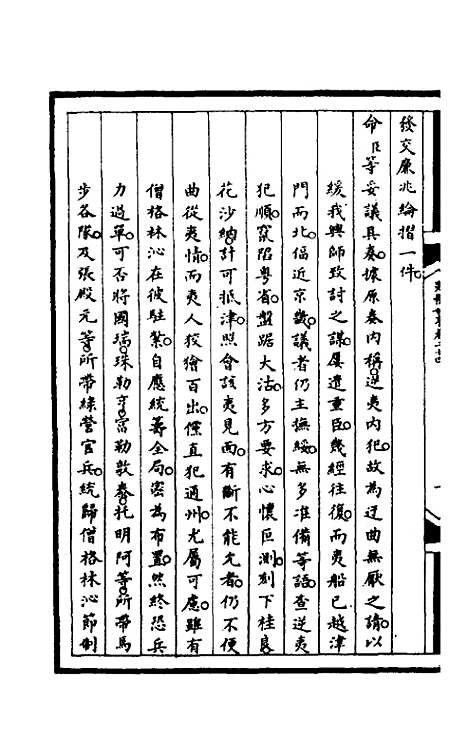 發交廉兆綸摺一件。
命臣等妥議具奏。據原奏內稱。逆夷內犯。故為迂曲無厭之請。以
緩我興師致討之謀。屢遣重臣。幾經往復。而夷船已越津
門而北。偪近京畿。議者仍主撫綏。無多准備等語。查逆夷
犯順。窺陷粵省。盤踞大沽。多方要求。心懷叵測。刻下桂良
花沙納計可抵津。照會該夷見面。有斷不能允者。仍不便
曲從夷情。而夷人狡獪百出。儻直犯通州。尤屬可慮。雖有
僧格林沁在彼駐紮。自應統籌全局。密為布置。然終恐兵
力過單。可否將國瑞。珠勒亨。富勒敦泰。托明阿等。所帶馬
步各隊。及張殿元等。所帶綠營官兵。統歸僧格林沁節制